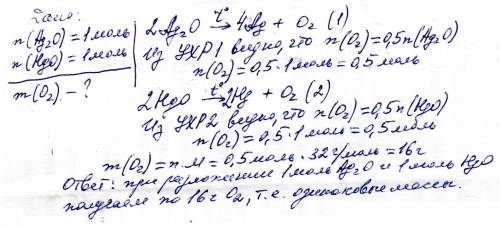 Дано:
n(Ag₂O) = 1 моль
n(HgO) = 1 моль
m(O₂) - ?
2Ag₂O →t° 4Ag + O₂ (1)
Из УХР1 видно, что n(O₂) = 0,5n(Ag₂O)
n(O₂) = 0,5 · 1 моль = 0,5 моль
2HgO →t° 2Hg + O₂ (2)
Из УХР2 видно, что n(O₂) = 0,5n(HgO)
n(O₂) = 0,5 · 1 моль = 0,5 моль
m(O₂) = n · M = 0,5 моль · 32 г/моль = 16 г
Ответ: при разложении 1 моль Ag₂O и 1 моль HgO
получаем по 16 г O₂, т.е. одинаковые массы.